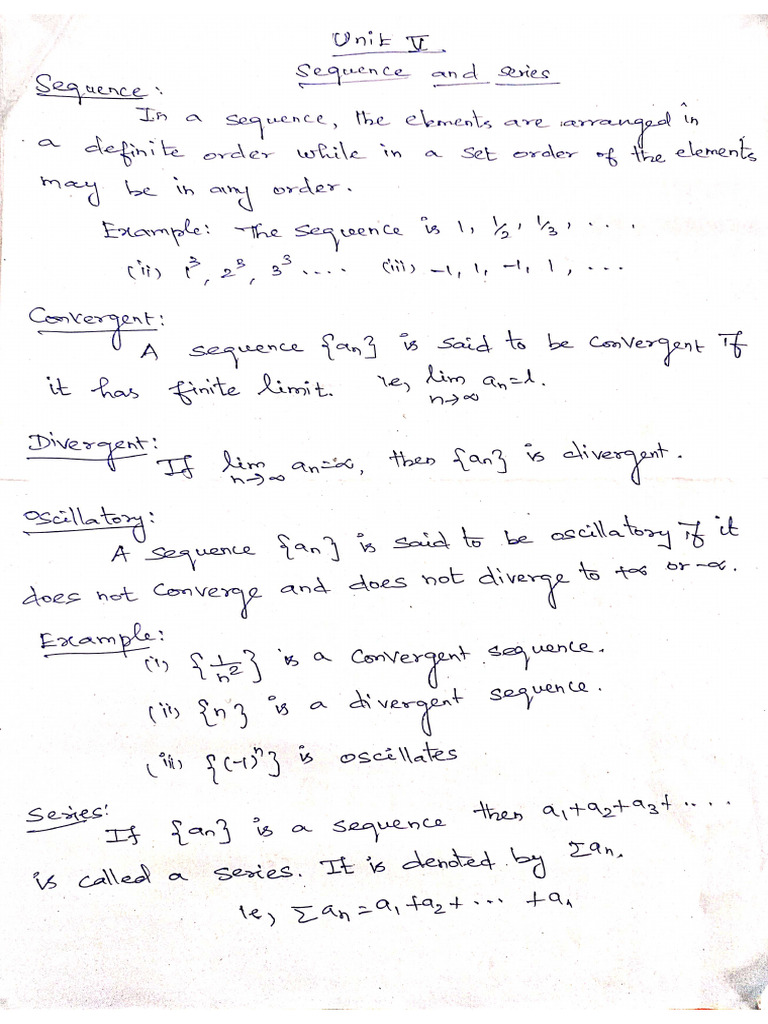 Unit V.
Sequence and series
Sequence:
In a sequence, the elements are arranged in
a definite order while in a set order of the elements
may be in any order.
Example: The sequence is 1, 1/2, 1/3, ....
(ii) 1³, 2³, 3³ .... (iii) -1, 1, -1, 1, ...
Convergent:
A sequence {aₙ} is said to be convergent if
it has finite limit. ie, lim aₙ=l.
n→∞
Divergent:
If lim aₙ=∞, then {aₙ} is divergent.
n→∞
Oscillatory:
A sequence {aₙ} is said to be oscillatory if it
does not converge and does not diverge to +∞ or -∞.
Example:
(i) {1/n²} is a convergent sequence.
(ii) {n} is a divergent sequence.
(iii) {(-1)ⁿ} is oscillates
Series:
If {aₙ} is a sequence then a₁+a₂+a₃+....
is called a series. It is denoted by Σaₙ.
ie, Σaₙ=a₁+a₂+... +a